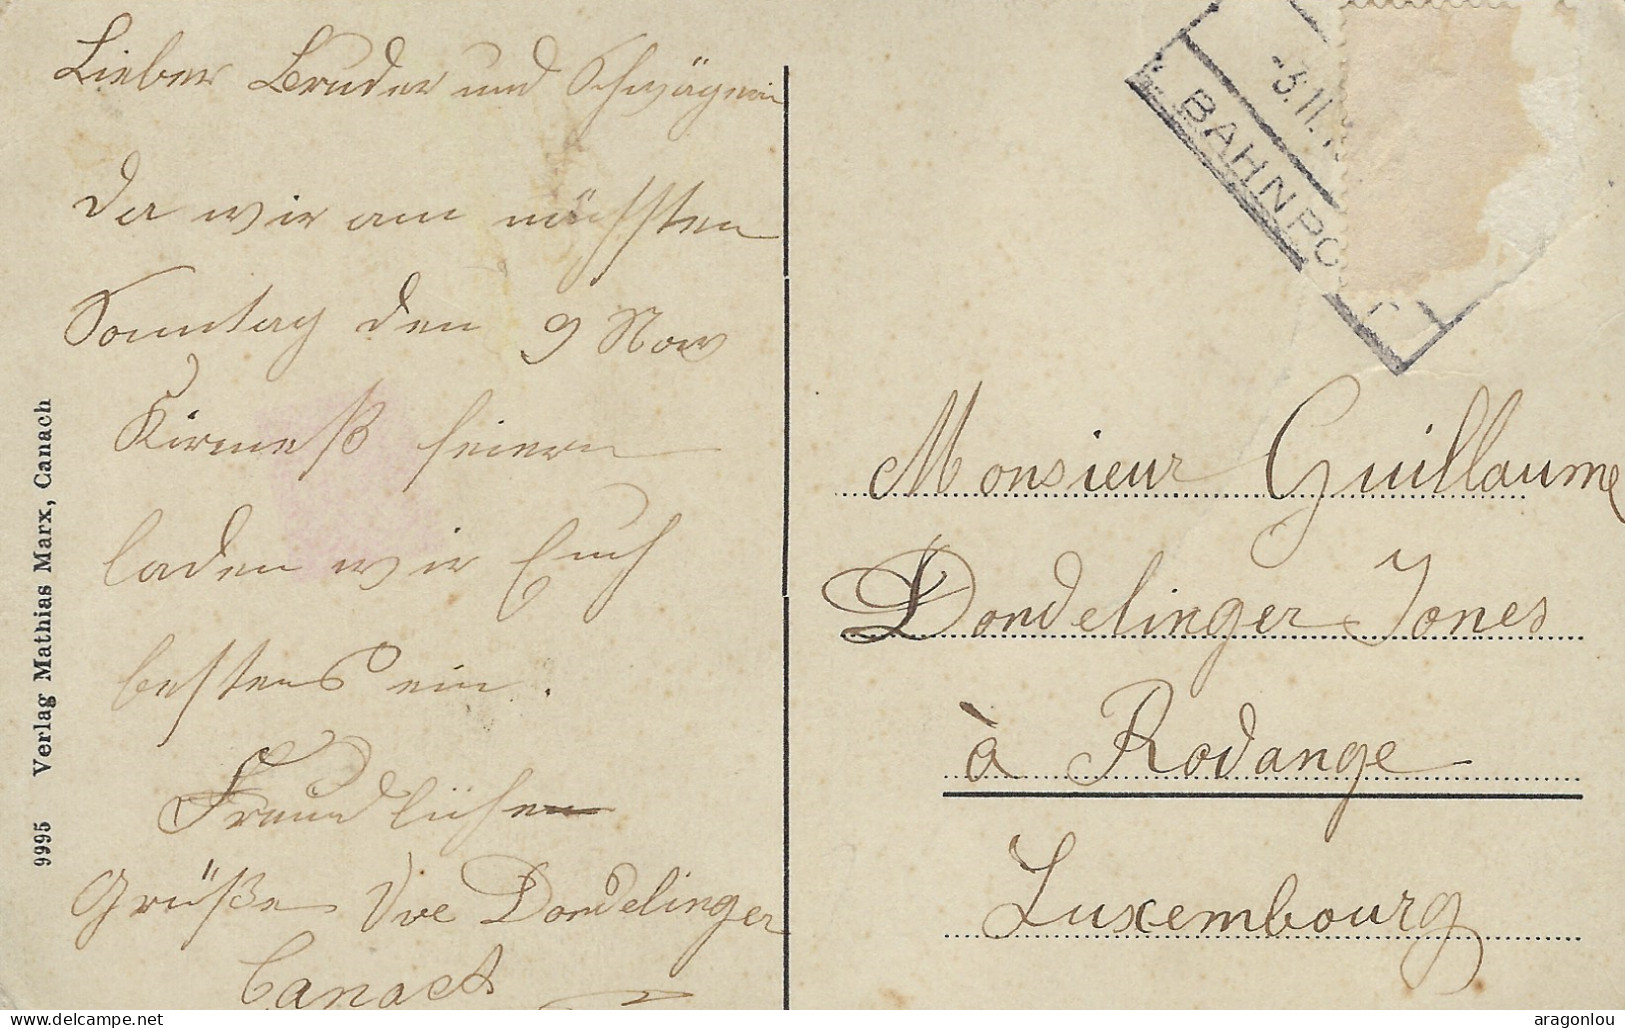 Lieber Bruder und Schwägerin
Da wir am nächsten
Sonntag den 9 Nov
Kirmeß feiern
laden wir Euch
bestens ein.
Freundlichen
Grüße Vve Dondelinger
Canach
9995 Verlag Mathias Marx, Canach
-3.11.1
BAHNPO
Monsieur Guillaume
Dondelinger Jones
à Rodange
Luxembourg
delcampe.net
aragonlou